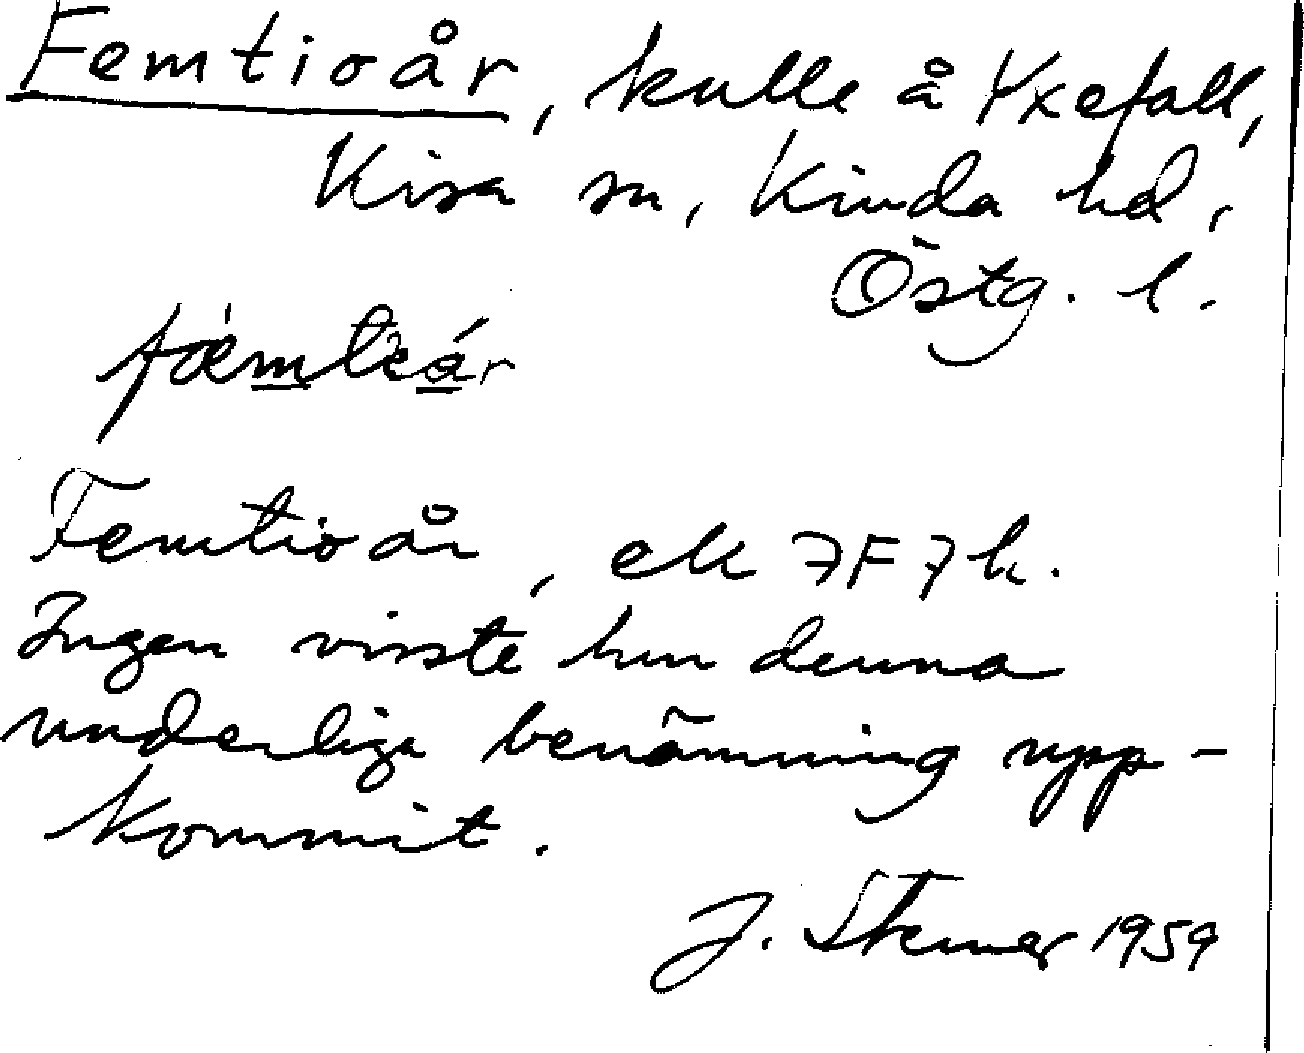 Femtioår, kulle å Yxefall,
Kisa sn, Kinda hd,
Östg. l.
Femtioår, ek 7F7h.
Ingen visste hur denna
underliga benämning upp-
kommit.
J. 1959